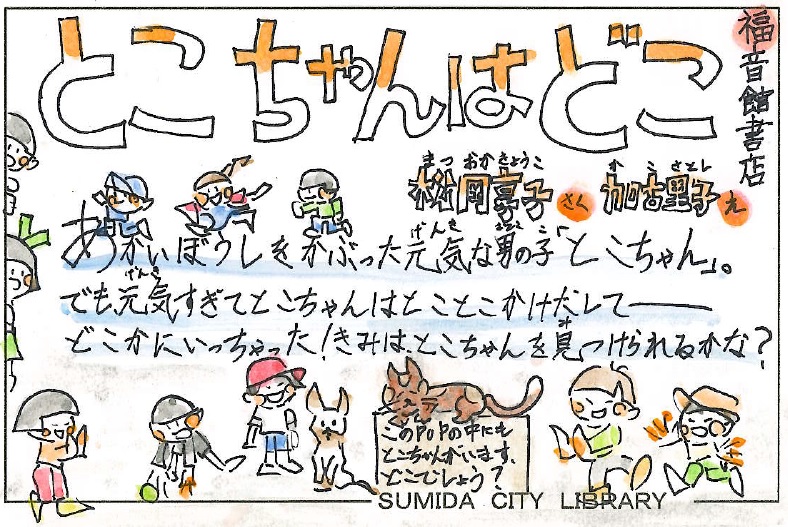 とこちゃんはどこ
福音館書店
まつおかきょうこ かこさとし
松岡享子 さく 加古里子 え
げんき おとこ こ
あかいぼうしをかぶった元気な男の子「とこちゃん」。
げんき
でも、元気すぎてとこちゃんはとことこかけだして――
み
どこかにいっちゃった！きみは、とこちゃんを見つけられるかな？
このPOPの中にも
とこちゃんがいます、
どこでしょう？
SUMIDA CITY LIBRARY